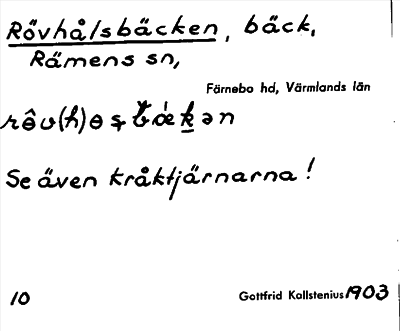 Rövhålsbäcken, bäck,
Rämens sn,
Färnebo hd, Värmlands län
Se även kråktjärnarna!
10 Gottfrid Kallstenius 1903